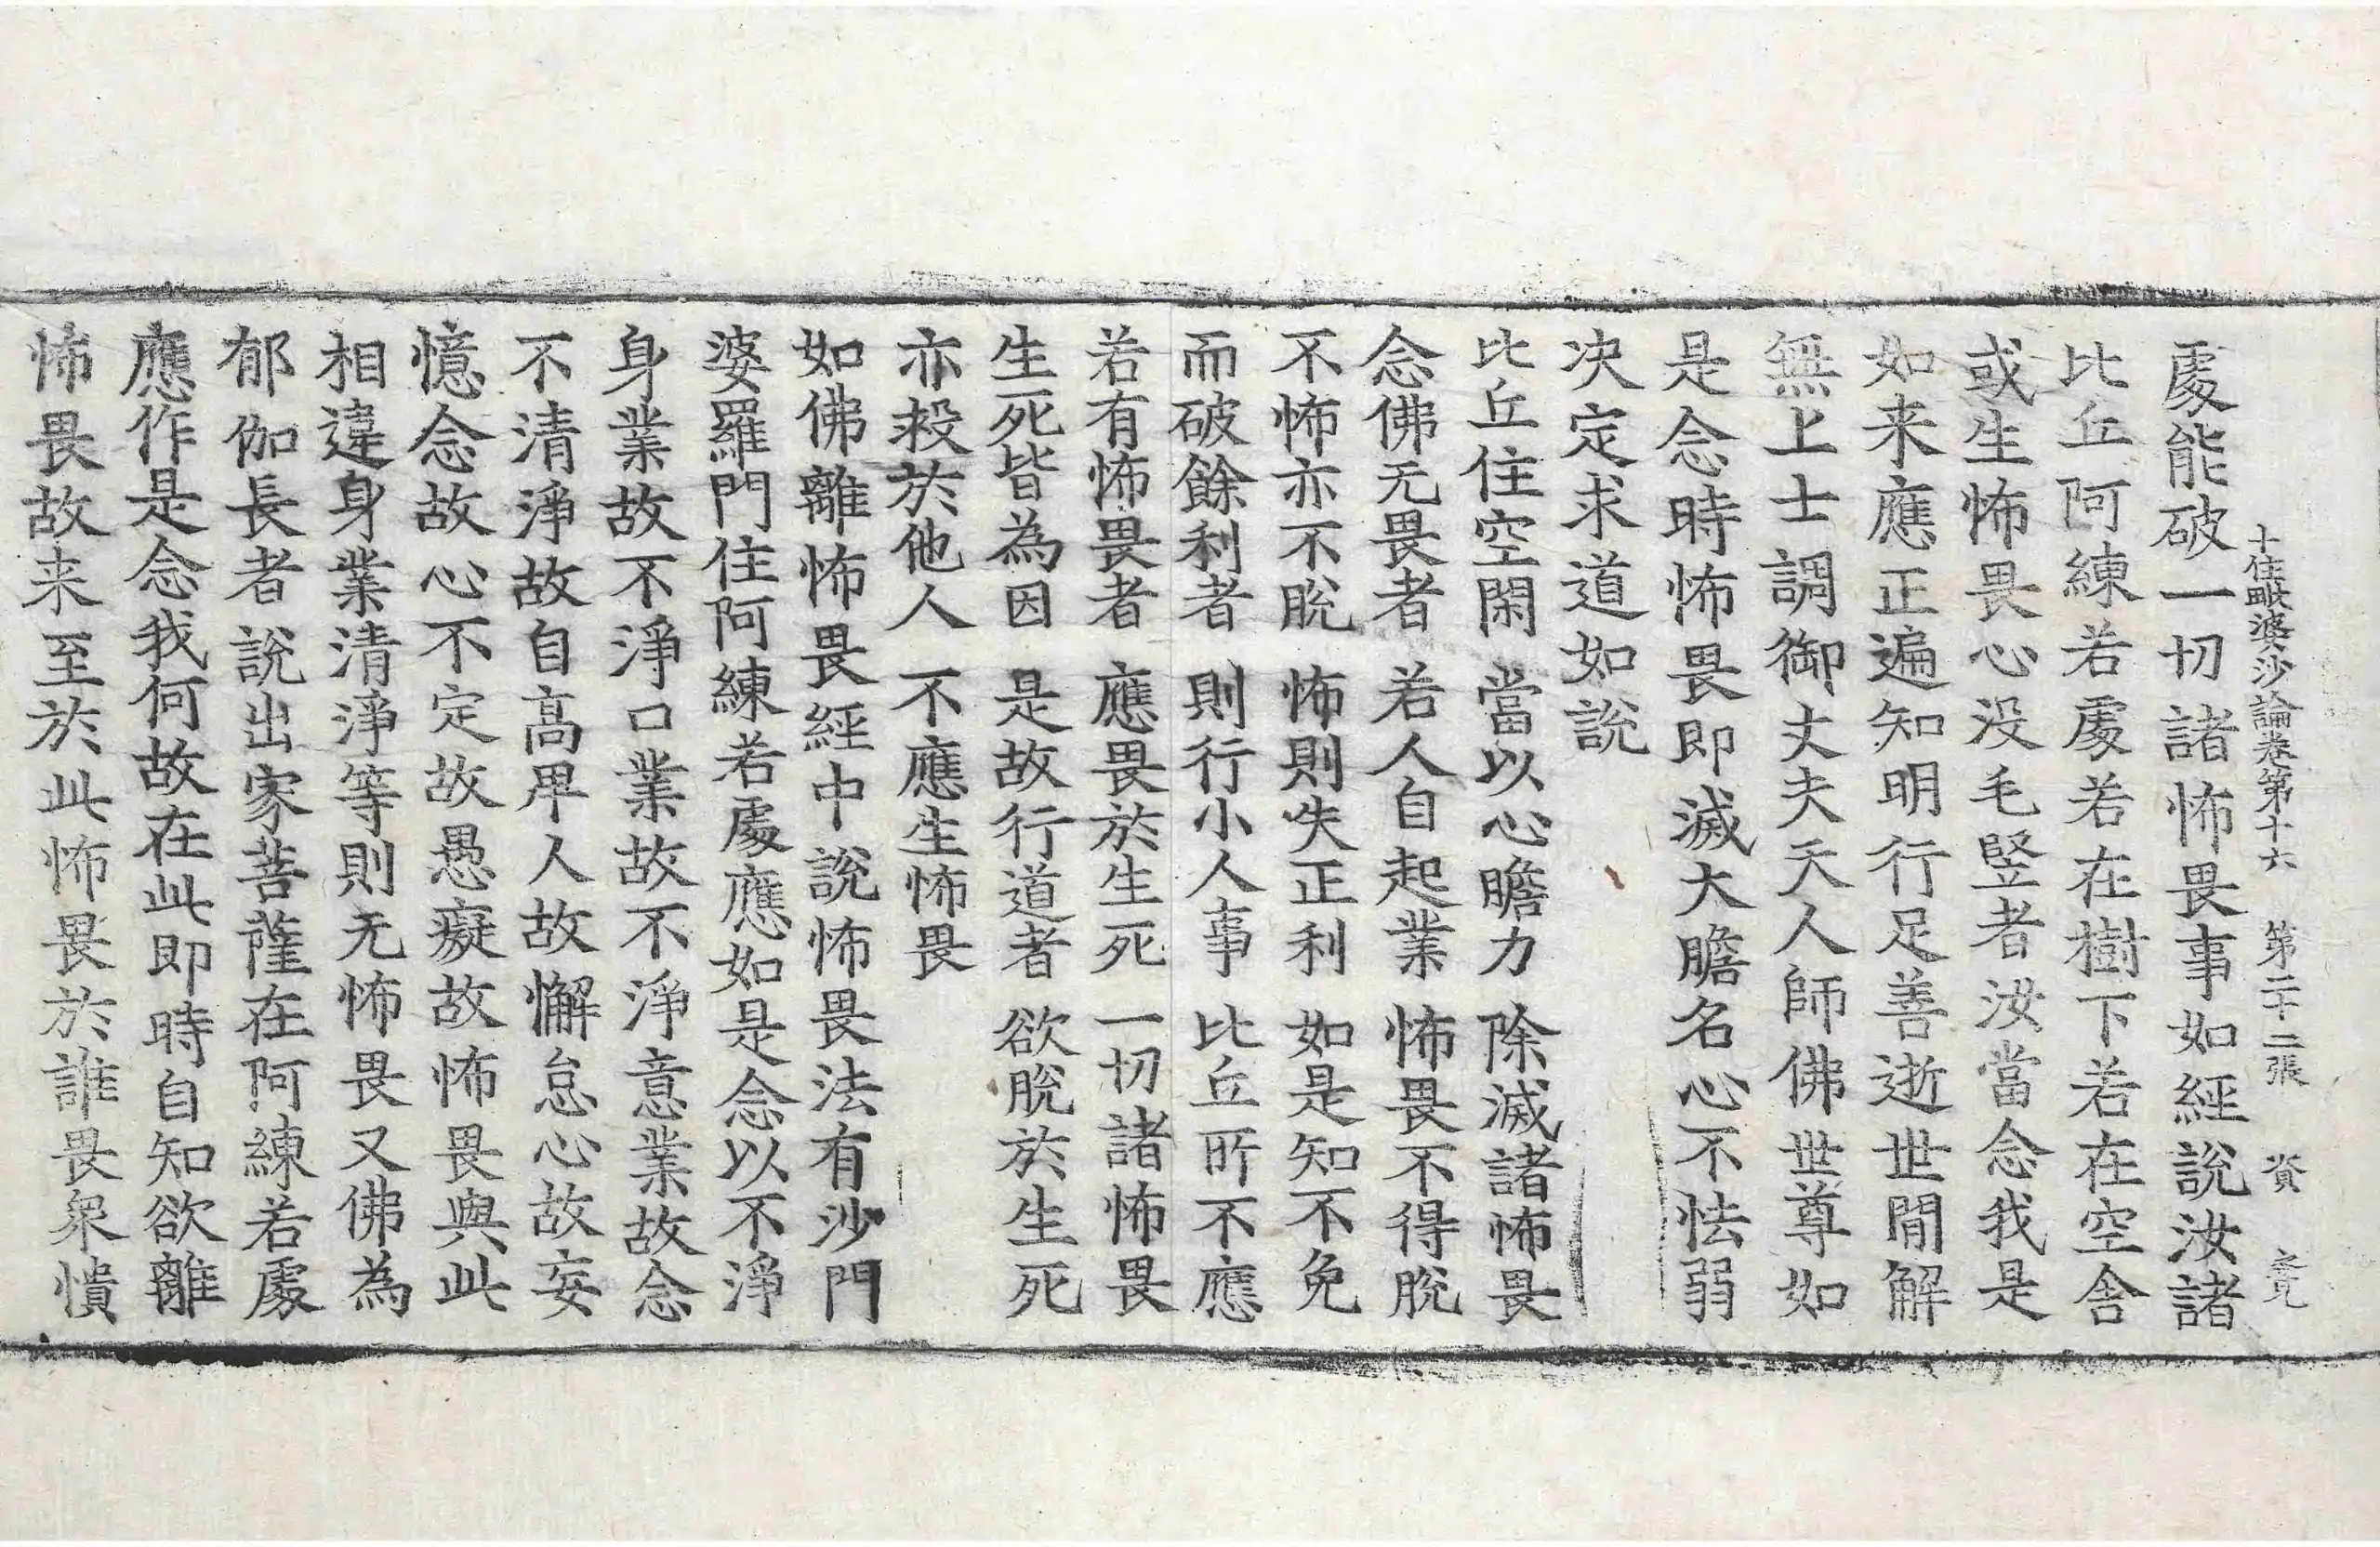 十住毗婆沙論卷第十六 第二十二張 資
處能破一切諸怖畏事如經說汝諸
比丘阿練若處若在樹下若在空舍
或生怖畏心没毛竪者汝當念我是
如来應正遍知明行足善逝世間解
無上士調御丈夫天人師佛世尊如
是念時怖畏即滅大膽名心不怯弱
决定求道如說
比丘住空閑 當以心膽力 除滅諸怖畏
念佛无畏者 若人自起業 怖畏不得脫
不怖亦不脫 怖則失正利 如是知不免
而破餘利者 則行小人事 比丘所不應
若有怖畏者 應畏於生死 一切諸怖畏
生死皆為因 是故行道者 欲脫於生死
亦救於他人 不應生怖畏
如佛離怖畏經中說怖畏法有沙門
婆羅門住阿練若處應如是念以不淨
身業故不淨口業故不淨意業故念
不清淨故自高卑人故懈怠心故妄
憶念故心不定故愚癡故怖畏與此
相違身業清淨等則无怖畏又佛為
郁伽長者說出家菩薩在阿練若處
應作是念我何故在此即時自知欲離
怖畏故来至於此怖畏於誰畏衆憒